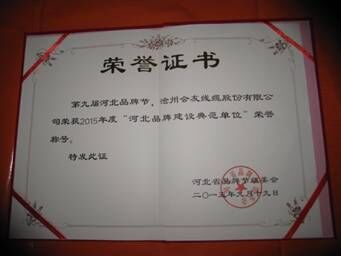 荣誉证书
第九届河北品牌节，沧州会友线缆股份有限公
司荣获2015年度“河北品牌建设典范单位”荣誉
称号。
特发此证
河北省品牌节组委会
二〇一五年九月十九日